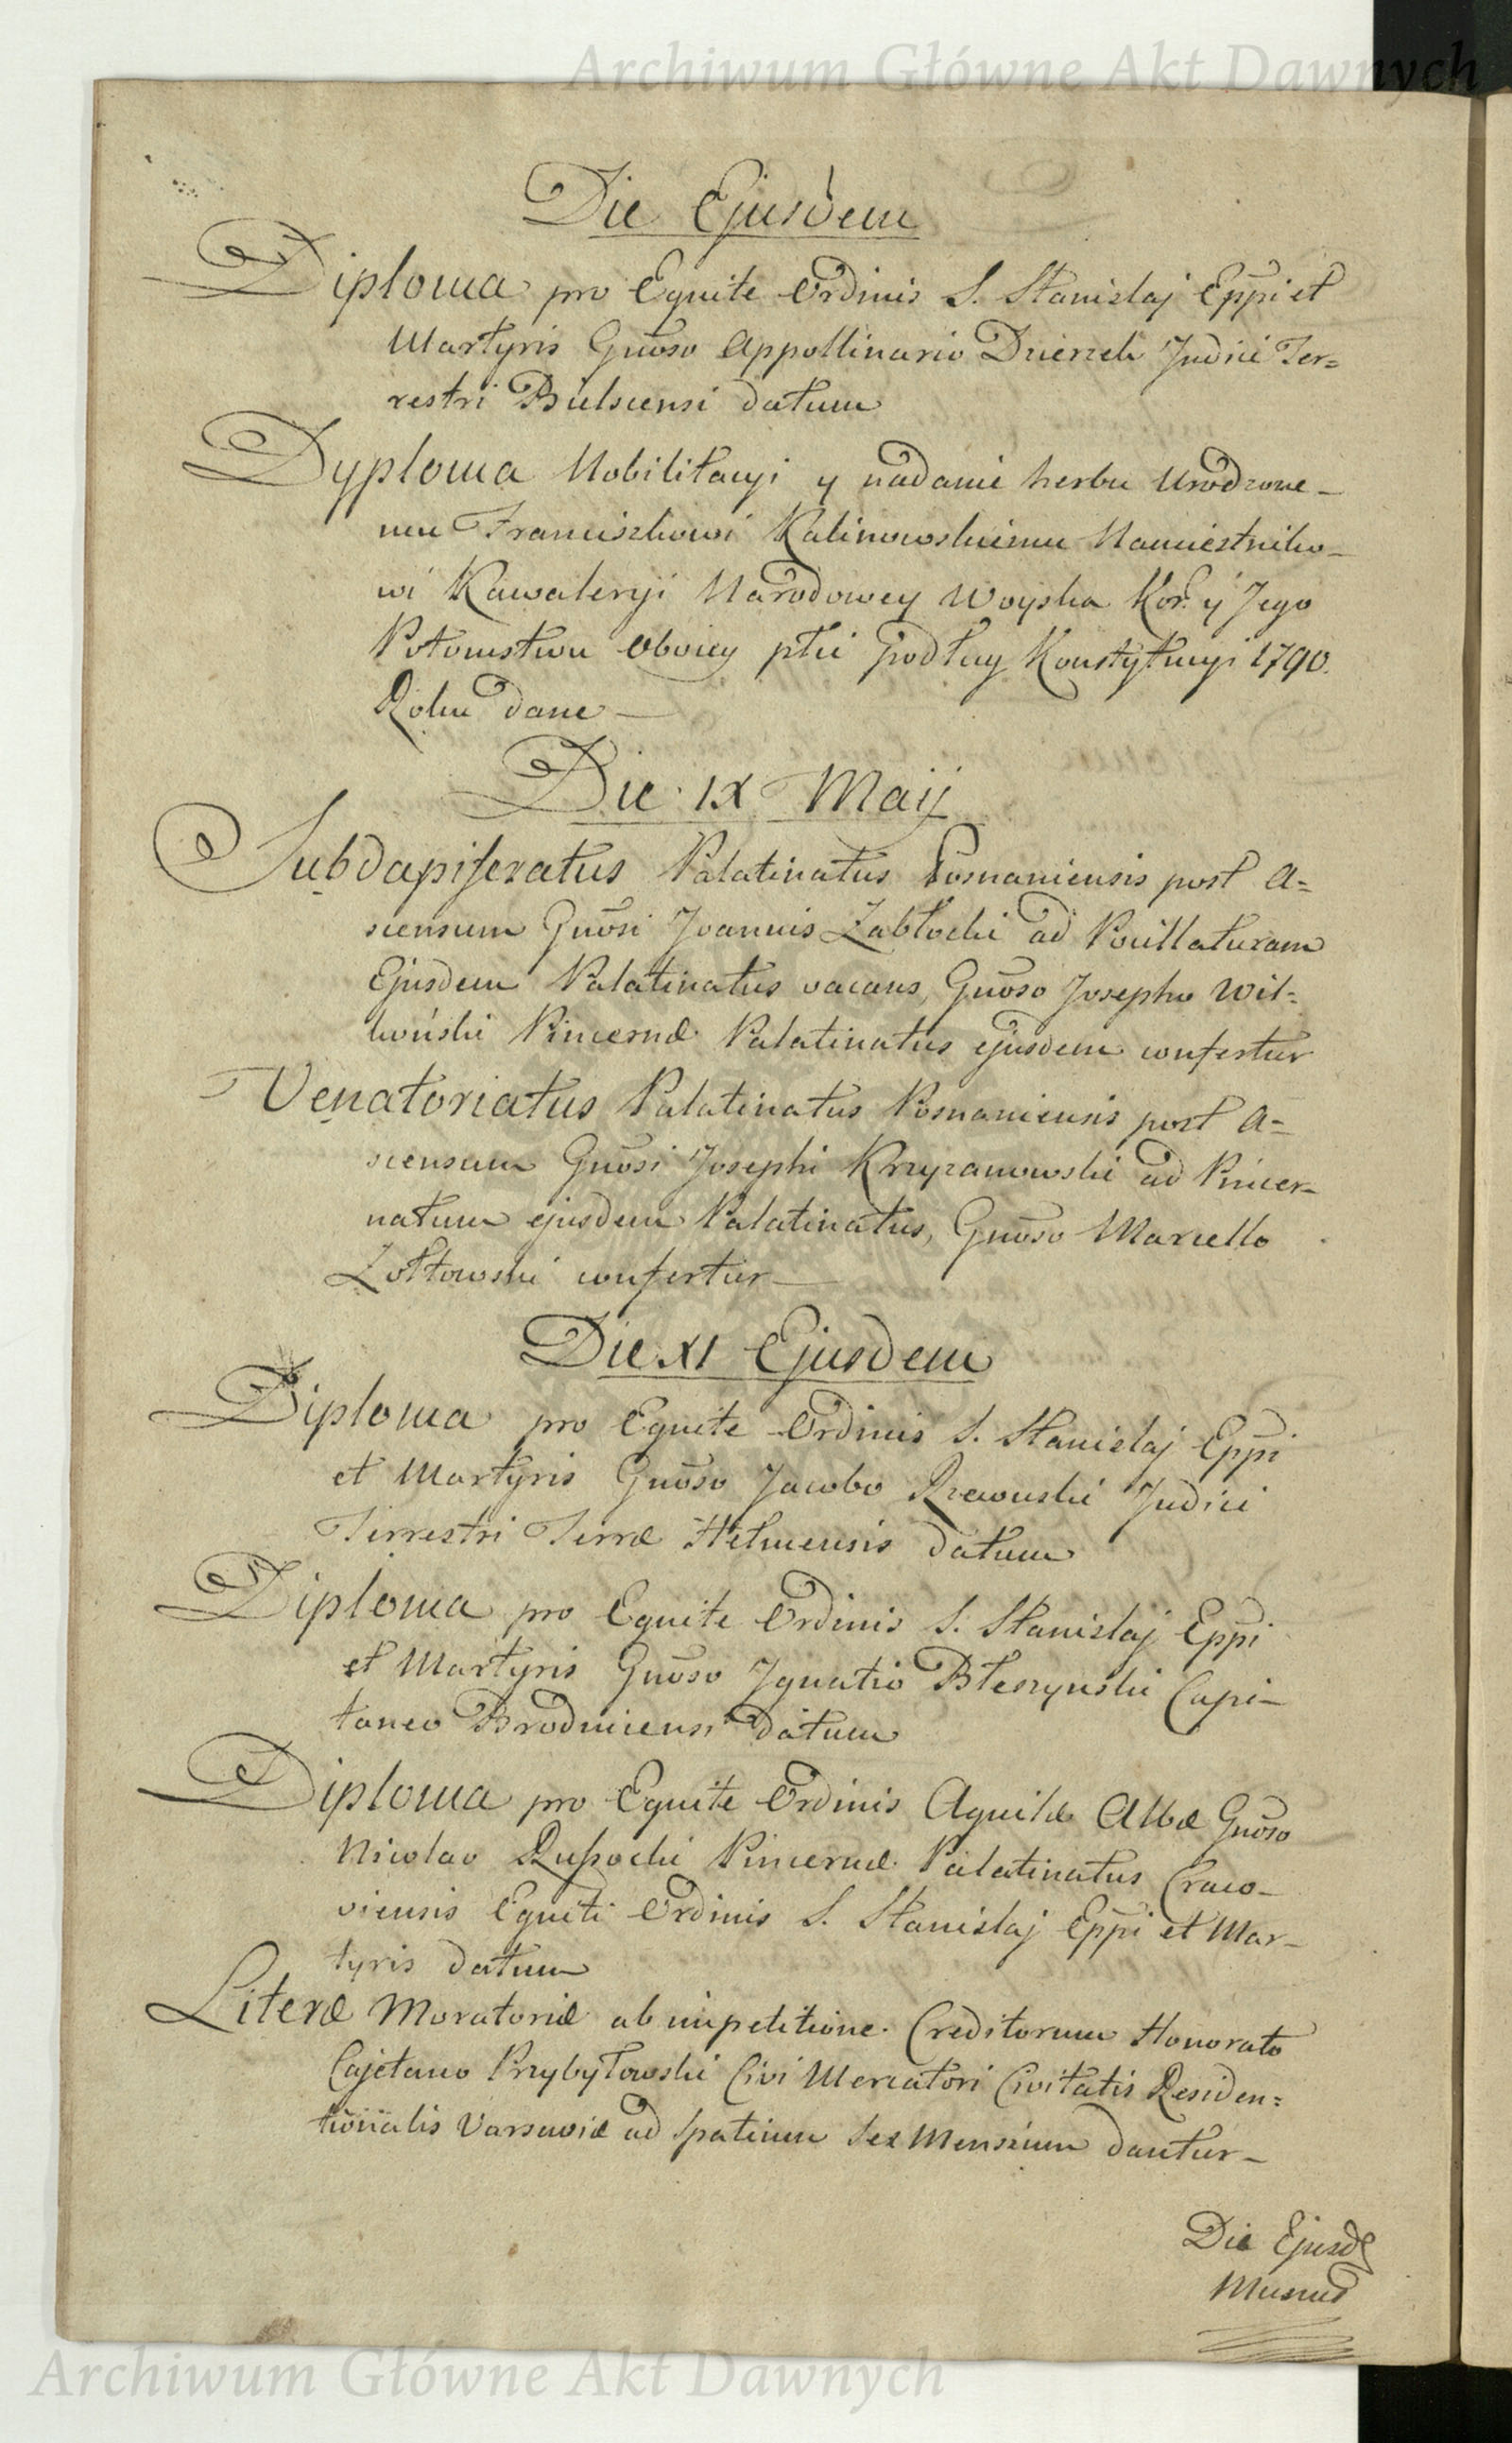 Archiwum Główne Akt Dawnych
Die Ejusdem
Diploma pro Equite Ordinis S. Stanislaj Eppi et
Martyris Gnoso Appollinario Dzierzek Judici Ter=
restri Bielscensi datum
Dyploma Nobilitacyi y nadanie herbu Urodzone-
mu Franciszkowi Kalinowskiemu Namiestniko-
wi Kawaleryi Narodowey Woyska Kor. y Jego
Potomstwu oboiey płci podług Konstytucyi 1790.
Roku dane
Die IX Maij
Subdapiferatus Palatinatus Posnaniensis post A=
scensum Gnosi Joannis Zabłocki ad Pocillaturam
Ejusdem Palatinatus vacans, Gnoso Josepho Wil=
koński Pincernæ Palatinatus ejusdem confertur
Venatoriatus Palatinatus Posnaniensis post A=
scensum Gnosi Josephi Krzyzanowski ad Pincer-
natum ejusdem Palatinatus, Gnoso Marcello
Zołtowski confertur
Die XI Ejusdem
Diploma pro Equite Ordinis S. Stanislaj Eppi
et Martyris Gnoso Jacobo Rzewuski Judici
Terrestri Terræ Helmensis datum
Diploma pro Equite Ordinis S. Stanislaj Eppi
et Martyris Gnoso Ignatio Błeszynski Capi-
taneo Brodnicensi datum
Diploma pro Equite Ordinis Aquilæ Albæ Gnoso
Nicolao Russocki Pincernæ Palatinatus Craco-
viensis Equiti Ordinis S. Stanislaj Eppi et Mar-
tyris datum
Literæ Moratoriæ ab impetitione Creditorum Honorato
Cajetano Przybyłowski Civi Mercatori Civitatis Residen=
tionalis Varsaviæ ad spatium sex Mensium dantur
Die Ejusd
Munus
Archiwum Główne Akt Dawnych